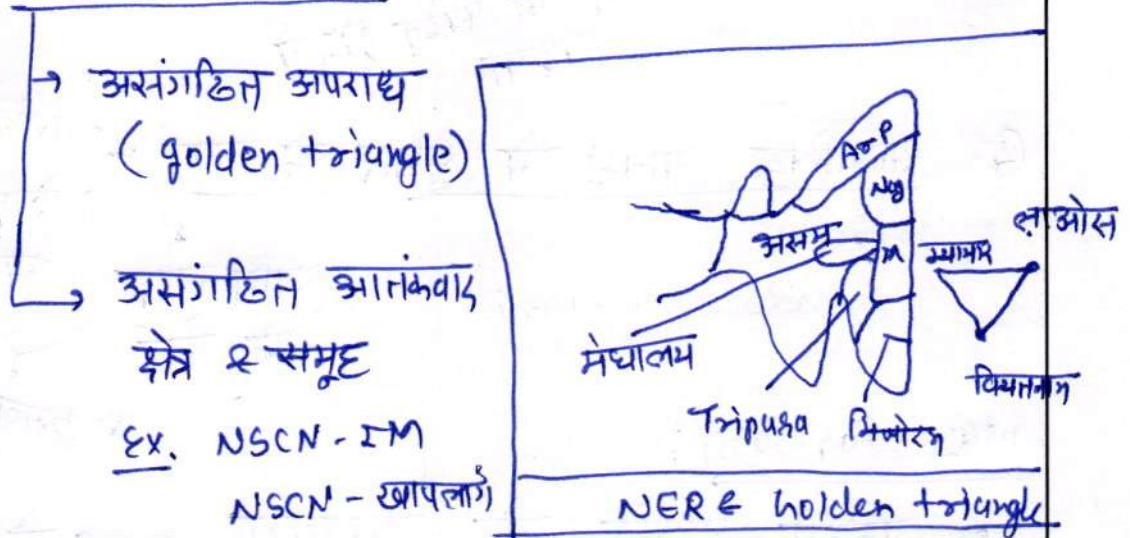 → असंगठित अपराध
(golden triangle)
→ असंगठित आतंकवाद
क्षेत्र & समूह
Ex. NSCN-IM
NSCN-खापलांग
Ar P
Nag
असम
M
म्यांमार
लाओस
मेघालय
वियतनाम
Tripura
मिजोरम
NER & Golden triangle